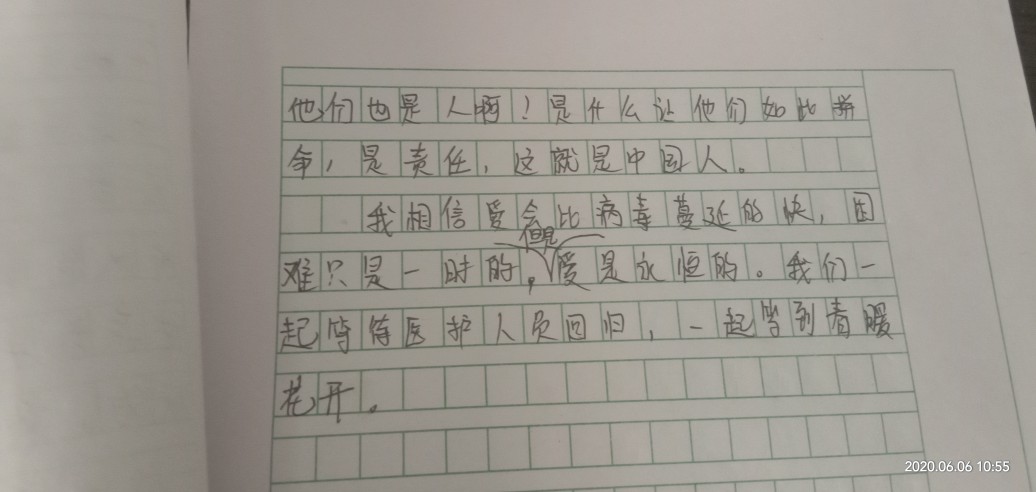 他们也是人啊！是什么让他们如比拼
命，是责任，这就是中国人。
我相信爱会比病毒蔓延的快，困
难只是一时的，但是爱是永恒的。我们一
起等待医护人员回归，一起等到春暖
花开。
2020.06.06 10:55